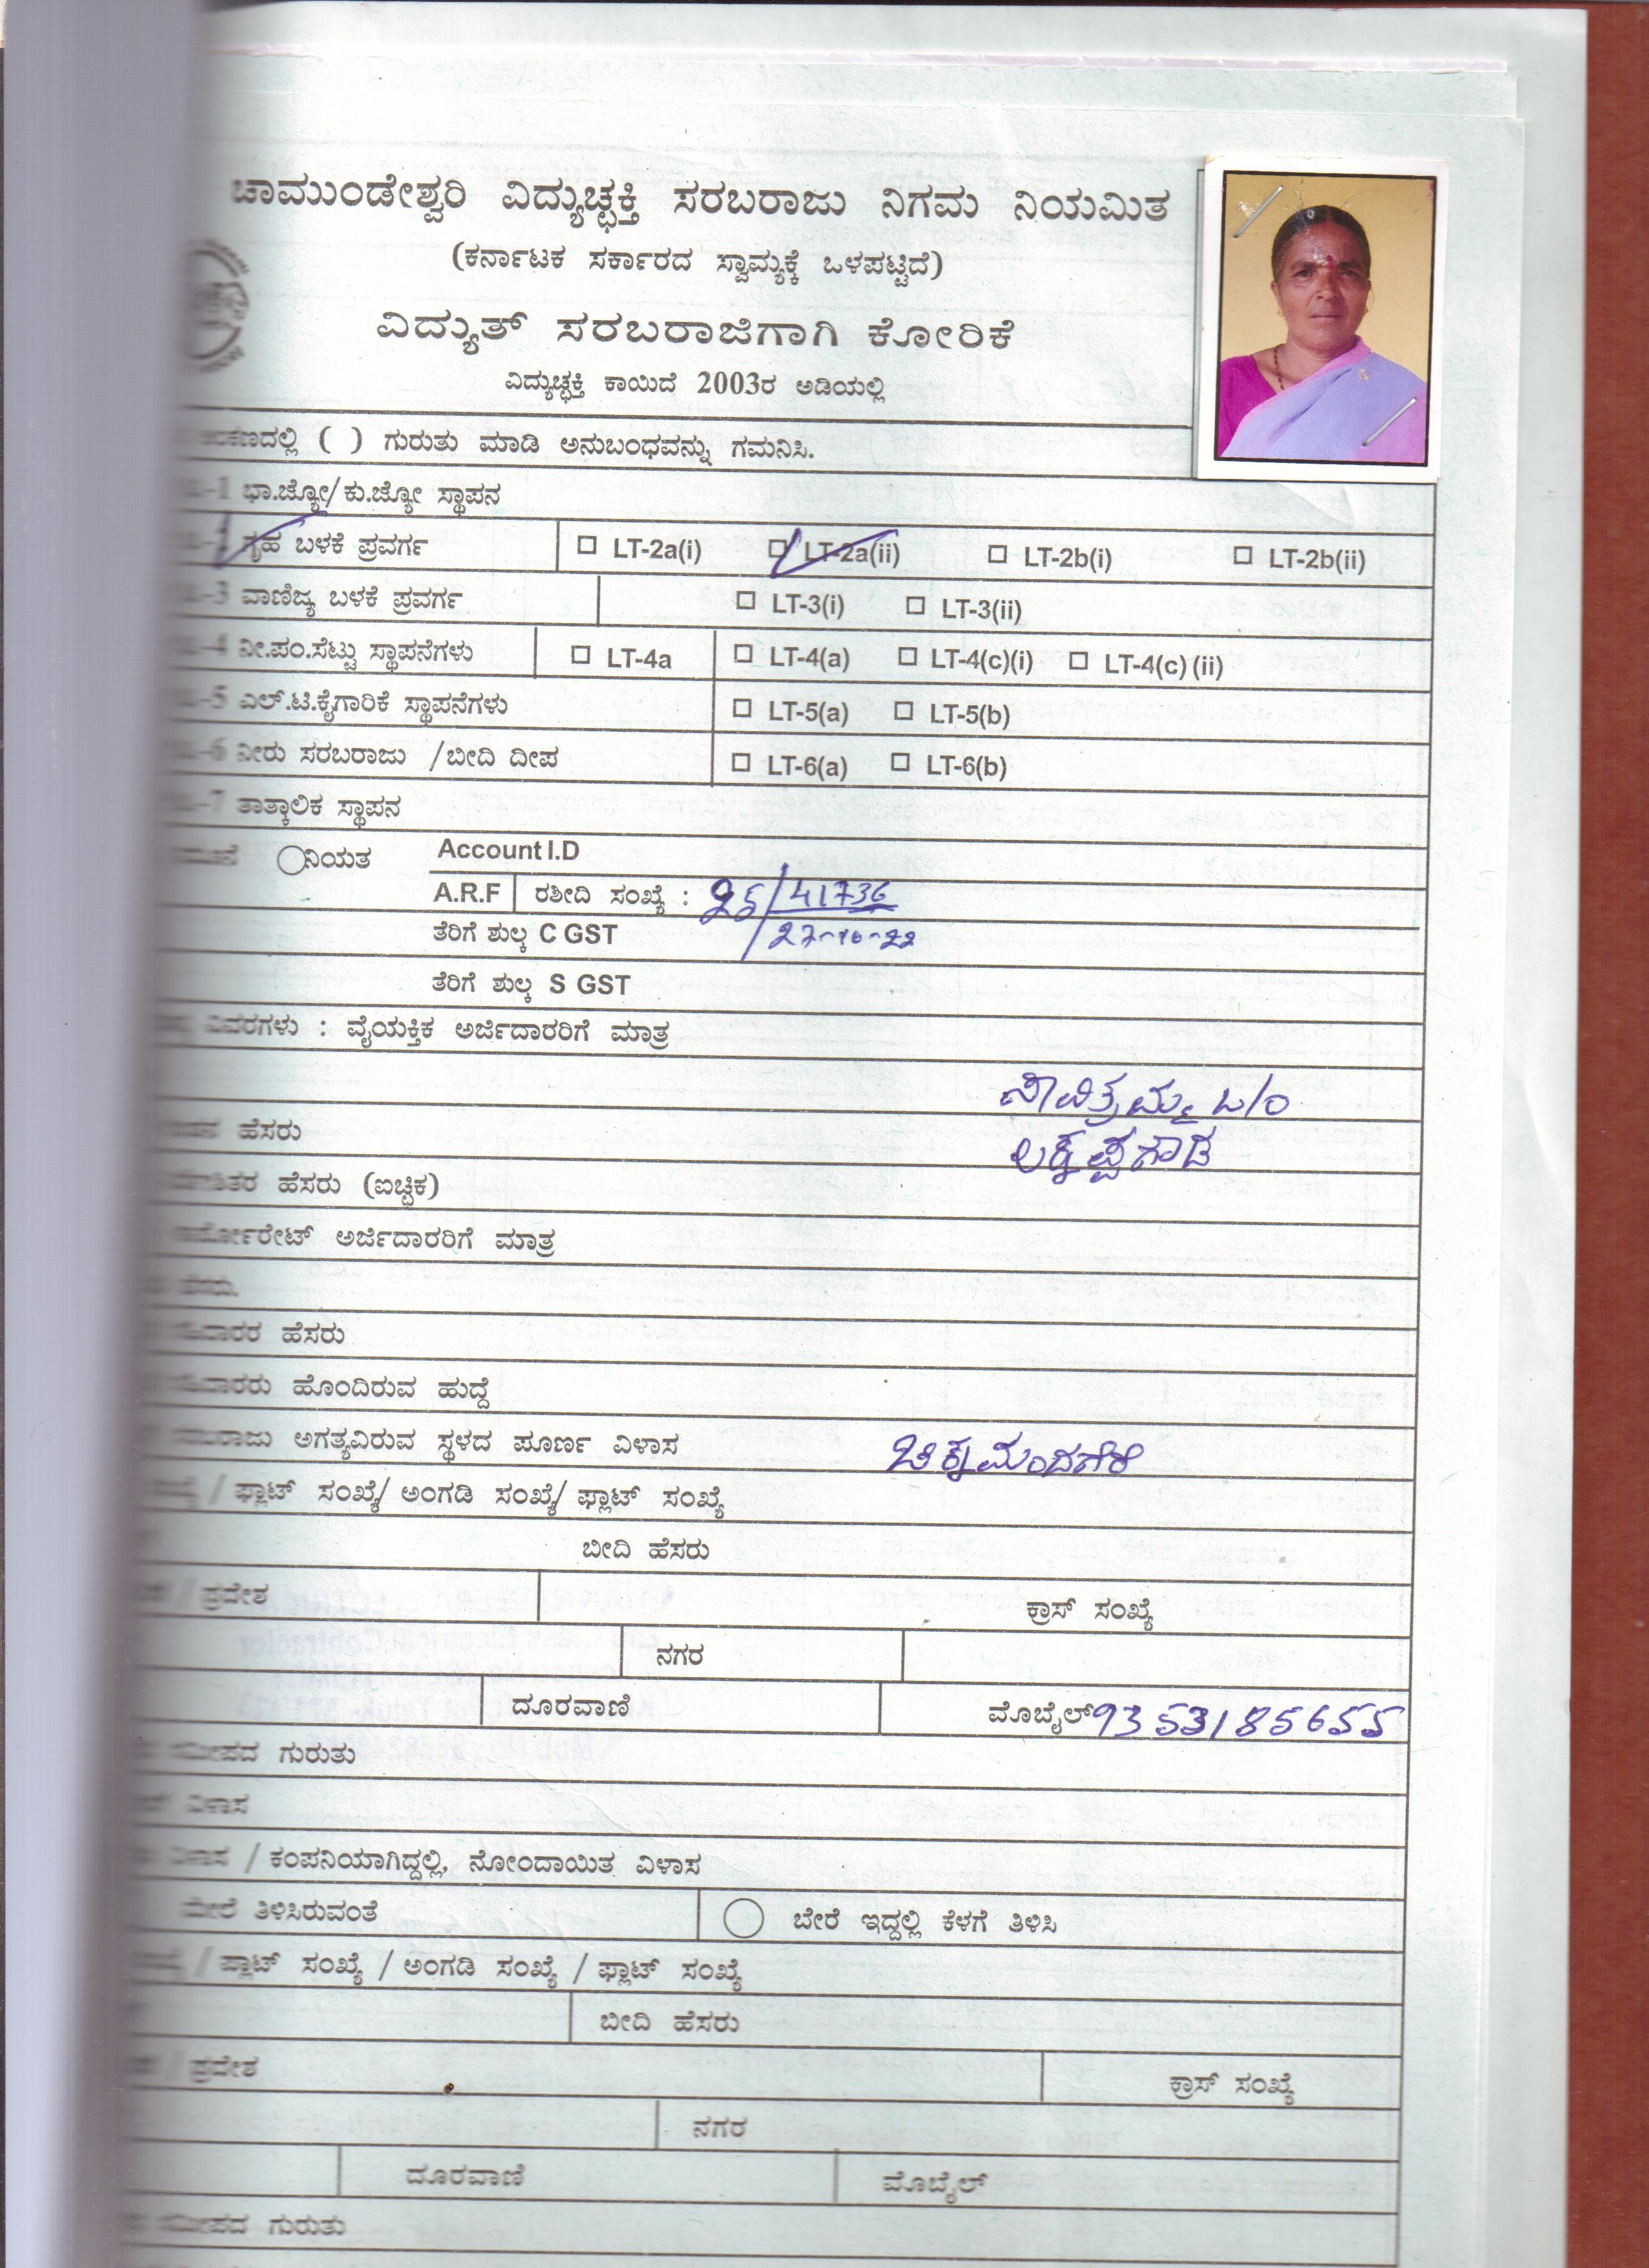 ಚಾಮುಂಡೇಶ್ವರಿ ವಿದ್ಯುಚ್ಛಕ್ತಿ ಸರಬರಾಜು ನಿಗಮ ನಿಯಮಿತ
(ಕರ್ನಾಟಕ ಸರ್ಕಾರದ ಸ್ವಾಮ್ಯಕ್ಕೆ ಒಳಪಟ್ಟಿದೆ)
ವಿದ್ಯುತ್ ಸರಬರಾಜಿಗಾಗಿ ಕೋರಿಕೆ
ವಿದ್ಯುಚ್ಛಕ್ತಿ ಕಾಯಿದೆ 2003ರ ಅಡಿಯಲ್ಲಿ
( ) ಗುರುತು ಮಾಡಿ ಅನುಬಂಧವನ್ನು ಗಮನಿಸಿ.
-1 ಭಾ.ಜ್ಯೋ/ಕು.ಜ್ಯೋ ಸ್ಥಾಪನ
ಗೃಹ ಬಳಕೆ ಪ್ರವರ್ಗ LT-2a(i) LT-2a(ii) LT-2b(i) LT-2b(ii)
-3 ವಾಣಿಜ್ಯ ಬಳಕೆ ಪ್ರವರ್ಗ LT-3(i) LT-3(ii)
-4 ನೀ.ಪಂ.ಸೆಟ್ಟು ಸ್ಥಾಪನೆಗಳು LT-4a LT-4(a) LT-4(c)(i) LT-4(c)(ii)
-5 ಎಲ್.ಟಿ.ಕೈಗಾರಿಕೆ ಸ್ಥಾಪನೆಗಳು LT-5(a) LT-5(b)
-6 ನೀರು ಸರಬರಾಜು /ಬೀದಿ ದೀಪ LT-6(a) LT-6(b)
-7 ತಾತ್ಕಾಲಿಕ ಸ್ಥಾಪನ
ನಿಯತ Account I.D
A.R.F ರಶೀದಿ ಸಂಖ್ಯೆ : 25/41736
ತೆರಿಗೆ ಶುಲ್ಕ C GST 27-10-22
ತೆರಿಗೆ ಶುಲ್ಕ S GST
ವಿವರಗಳು : ವೈಯಕ್ತಿಕ ಅರ್ಜಿದಾರರಿಗೆ ಮಾತ್ರ
ಸಾವಿತ್ರಮ್ಮ
ಹೆಸರು
ಹೆಸರು (ಐಚ್ಛಿಕ)
ಅರ್ಜಿದಾರರಿಗೆ ಮಾತ್ರ
ಹೆಸರು.
ಹೆಸರು
ಹೊಂದಿರುವ ಹುದ್ದೆ
ಅಗತ್ಯವಿರುವ ಸ್ಥಳದ ಪೂರ್ಣ ವಿಳಾಸ ಚಿಕ್ಕಮಂದಗೆರೆ
/ ಫ್ಲಾಟ್ ಸಂಖ್ಯೆ/ ಅಂಗಡಿ ಸಂಖ್ಯೆ/ ಫ್ಲಾಟ್ ಸಂಖ್ಯೆ
ಬೀದಿ ಹೆಸರು
/ ಪ್ರದೇಶ ಕ್ರಾಸ್ ಸಂಖ್ಯೆ
ನಗರ
ದೂರವಾಣಿ ಮೊಬೈಲ್ 9353185655
ಗುರುತು
ವಿಳಾಸ
/ ಕಂಪನಿಯಾಗಿದ್ದಲ್ಲಿ, ನೋಂದಾಯಿತ ವಿಳಾಸ
ಮೇಲೆ ತಿಳಿಸಿರುವಂತೆ ಬೇರೆ ಇದ್ದಲ್ಲಿ ಕೆಳಗೆ ತಿಳಿಸಿ
/ ಫ್ಲಾಟ್ ಸಂಖ್ಯೆ / ಅಂಗಡಿ ಸಂಖ್ಯೆ / ಫ್ಲಾಟ್ ಸಂಖ್ಯೆ
ಬೀದಿ ಹೆಸರು
/ ಪ್ರದೇಶ ಕ್ರಾಸ್ ಸಂಖ್ಯೆ
ನಗರ
ದೂರವಾಣಿ ಮೊಬೈಲ್
ಗುರುತು